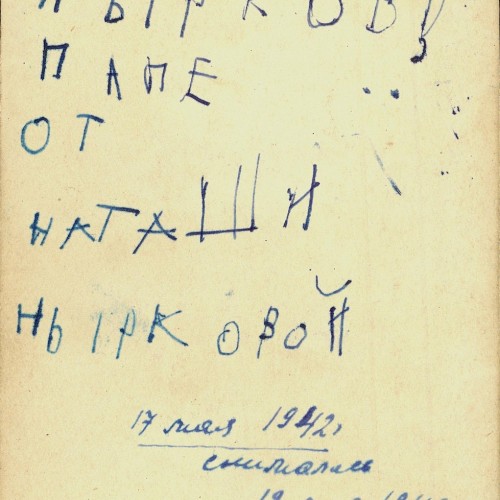 НЫРКОВУ
ПАПЕ
ОТ
НАТАШИ
НЫРКОВОЙ
17 мая 1942г
снимались